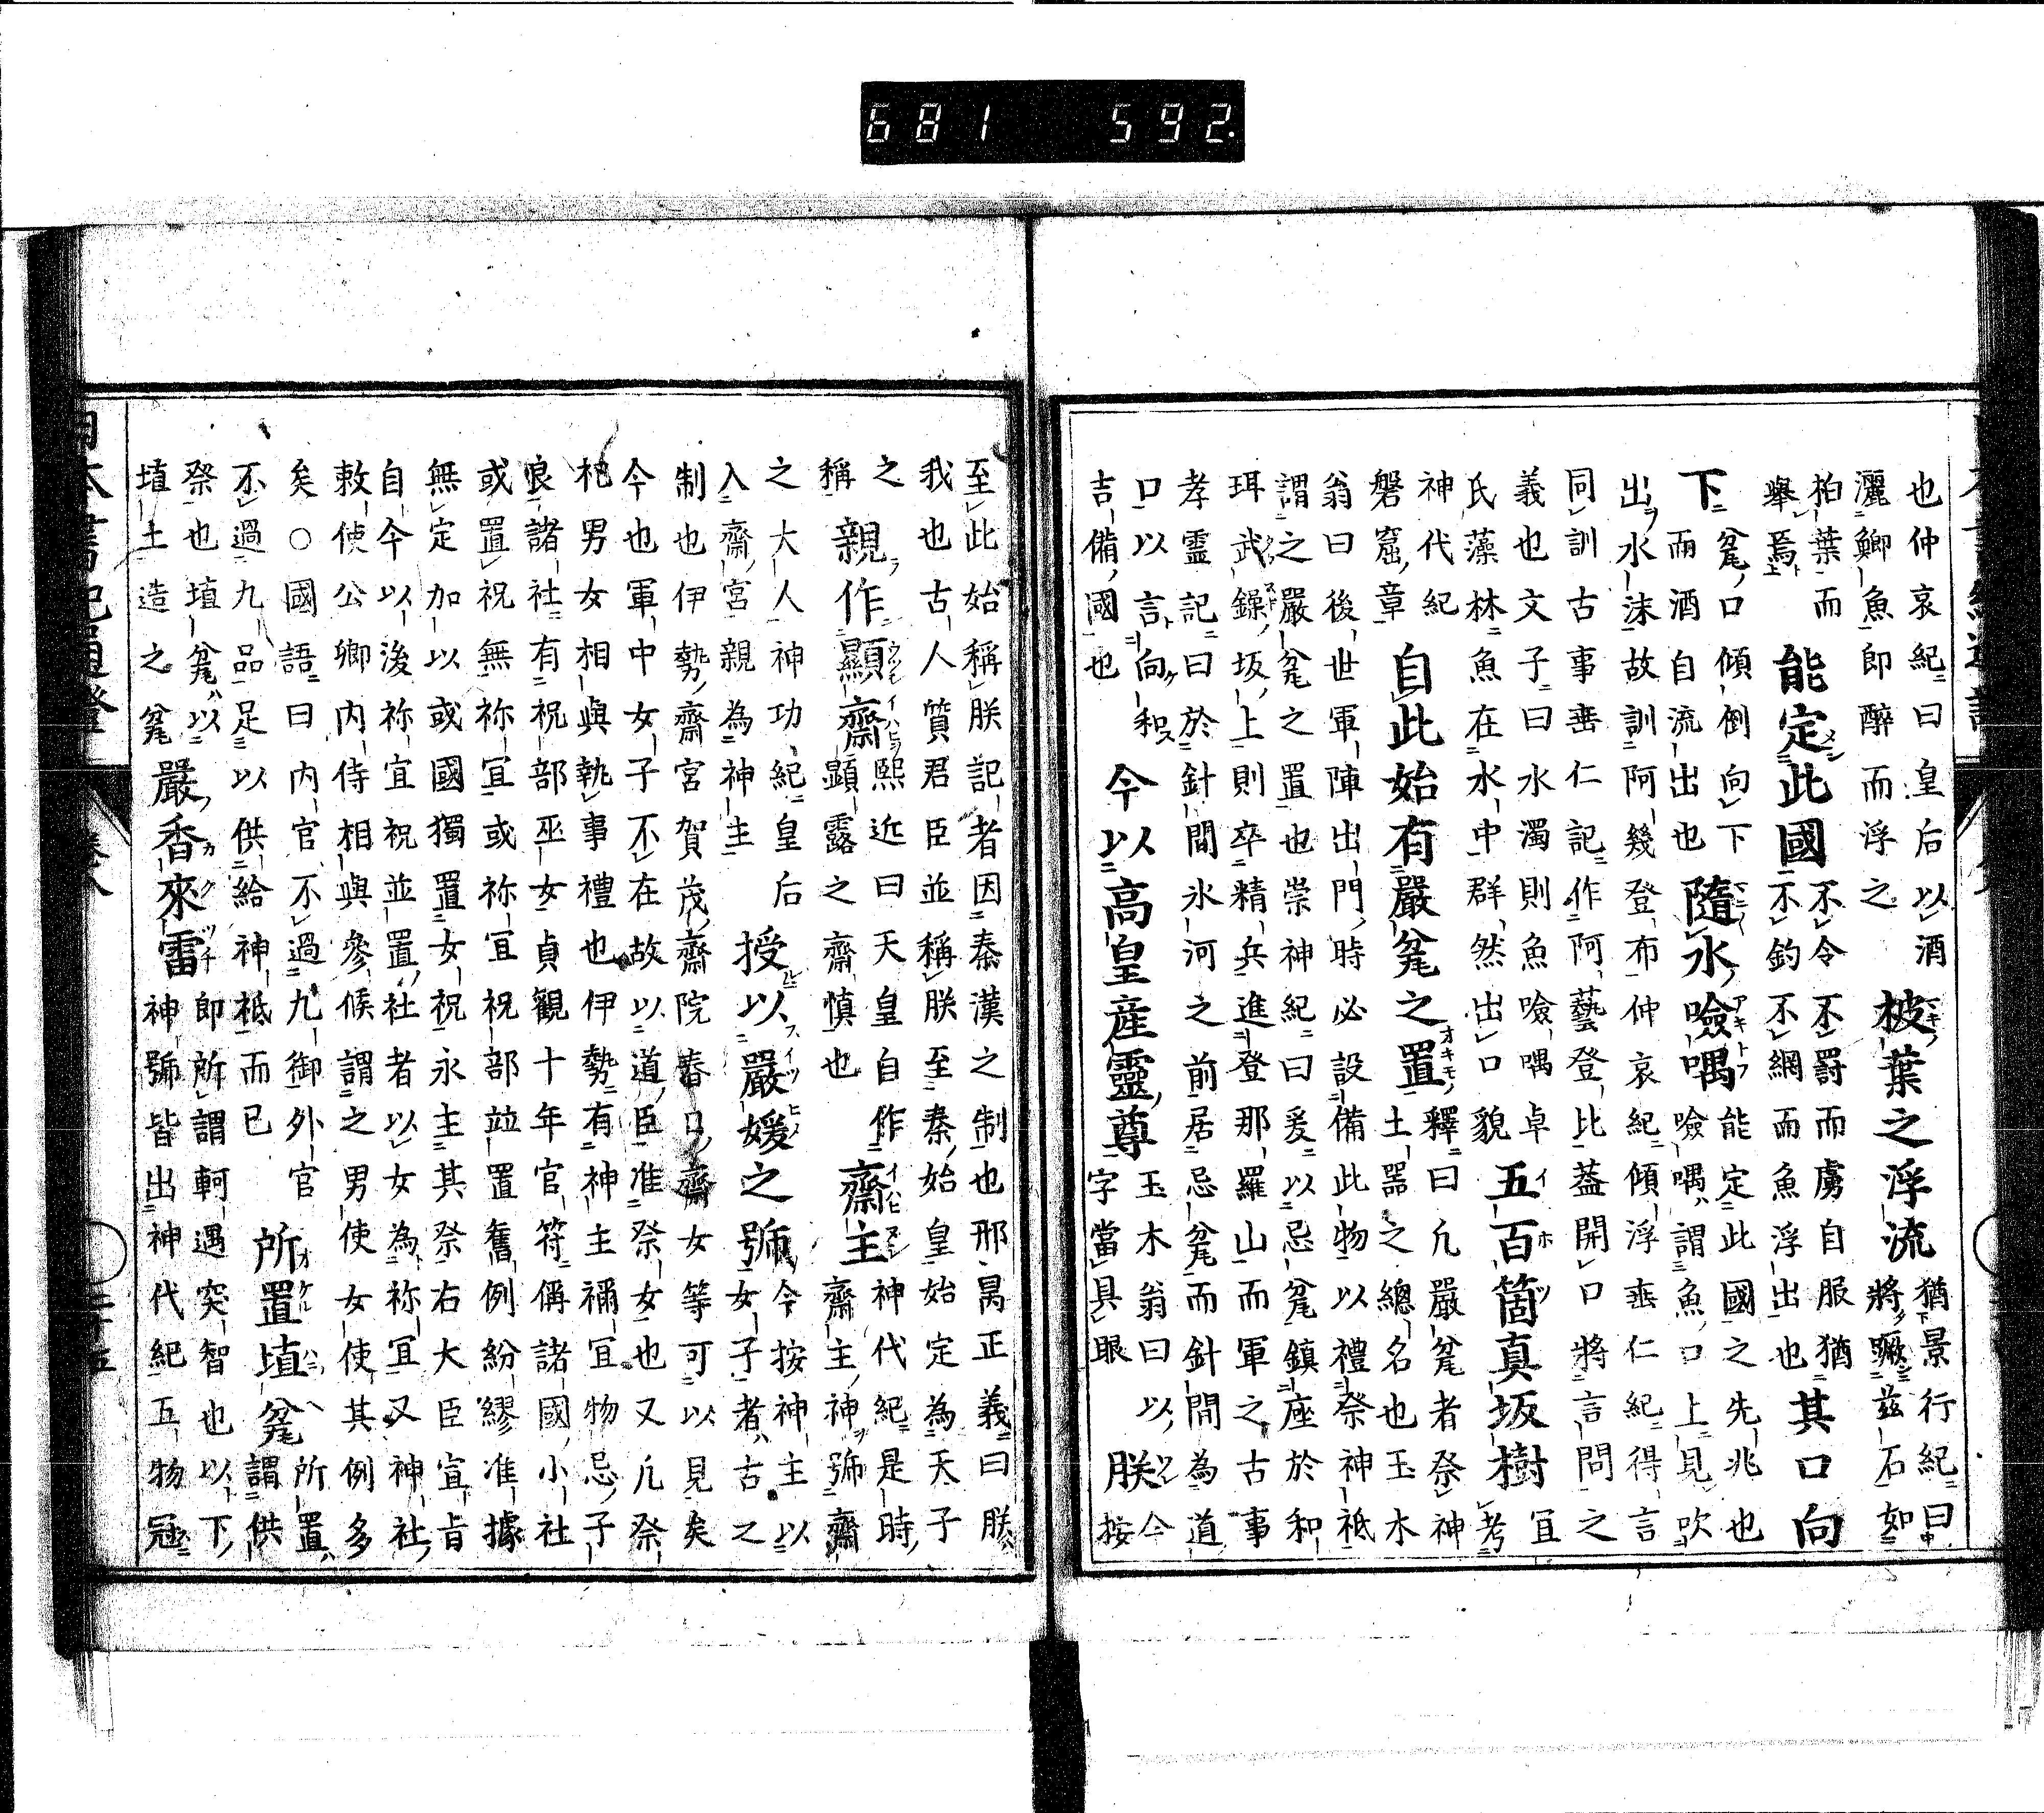 681 592.
也仲哀紀曰皇后以酒
灑鯽魚即醉而浮之
柀葉之浮流
猶景行紀曰
將蹶茲石如
柏葉而
舉焉
能定此國
不令不罰而虜自服猶
不釣不網而魚浮出也
其口向
下
瓮口傾倒向下
而酒自流出也
隨水噞喁
能定此國之先兆也
噞喁謂魚口上見吹
出水沫故訓阿幾登布仲哀紀傾浮垂仁紀得言
同訓古事垂仁記作阿藝登比蓋開口將言問之
義也文子曰水濁則魚噞喁卓
氏藻林魚在水中群然出口貌
五百箇真坂樹
宜
考
神代紀
磐窟章
自此始有嚴瓮之置
釋曰凡嚴瓮者祭神
土器之總名也玉木
翁曰後世軍陣出門時必設備此物以禮祭神祇
謂之嚴瓮之置也崇神紀曰爰以忌瓮鎮座於和
珥武鐰坂上則卒精兵進登那羅山而軍之古事
孝靈記曰於針間氷河之前居忌瓮而針間為道
口以言向和
吉備國也
今以高皇産靈尊
玉木翁曰以
字當具眼
朕
今
按
至此始稱朕記者因秦漢之制也邢昺正義曰朕
我也古人質君臣並稱朕至秦始皇始定為天子
之
稱
親作顯齋
熙近曰天皇自作
顯露之齋慎也
齋主
神代紀是時
齋主神號齋
之大人神功紀皇后
入齋宮親為神主
授以嚴媛之號
今按神主以
女子者古之
制也伊勢齋宮賀茂齋院春口齋女等可以見矣
今也軍中女子不在故以道臣准祭女也又凡祭
祀男女相與執事禮也伊勢有神主禰宜物忌子
良諸社有祝部巫女貞觀十年官符偁諸國小社
或置祝無祢宜或祢宜祝部並置舊例紛繆准據
無定加以或國獨置女祝永主其祭右大臣宣旨
自今以後祢宜祝並置社者以女為祢宜又神社
敕使公卿内侍相與參候謂之男使女使其例多
矣○國語曰内官不過九御外官
不過九品足以供給神祇而已
所置埴瓮
所置
謂供
祭也埴瓮以
埴土造之瓮
嚴香來雷
即所謂軻遇突智也以下
神號皆出神代紀五物冠